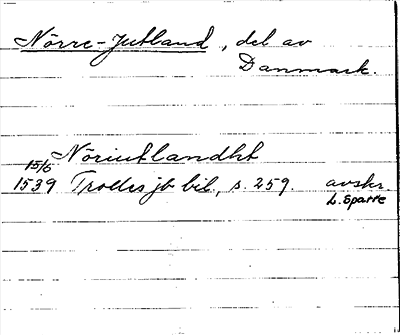 Nörre-Jutland, del av
Danmark.
Nöriutlandht
15/6
1539 Trolles jb bil, s. 259. avskr.
L. Sparre